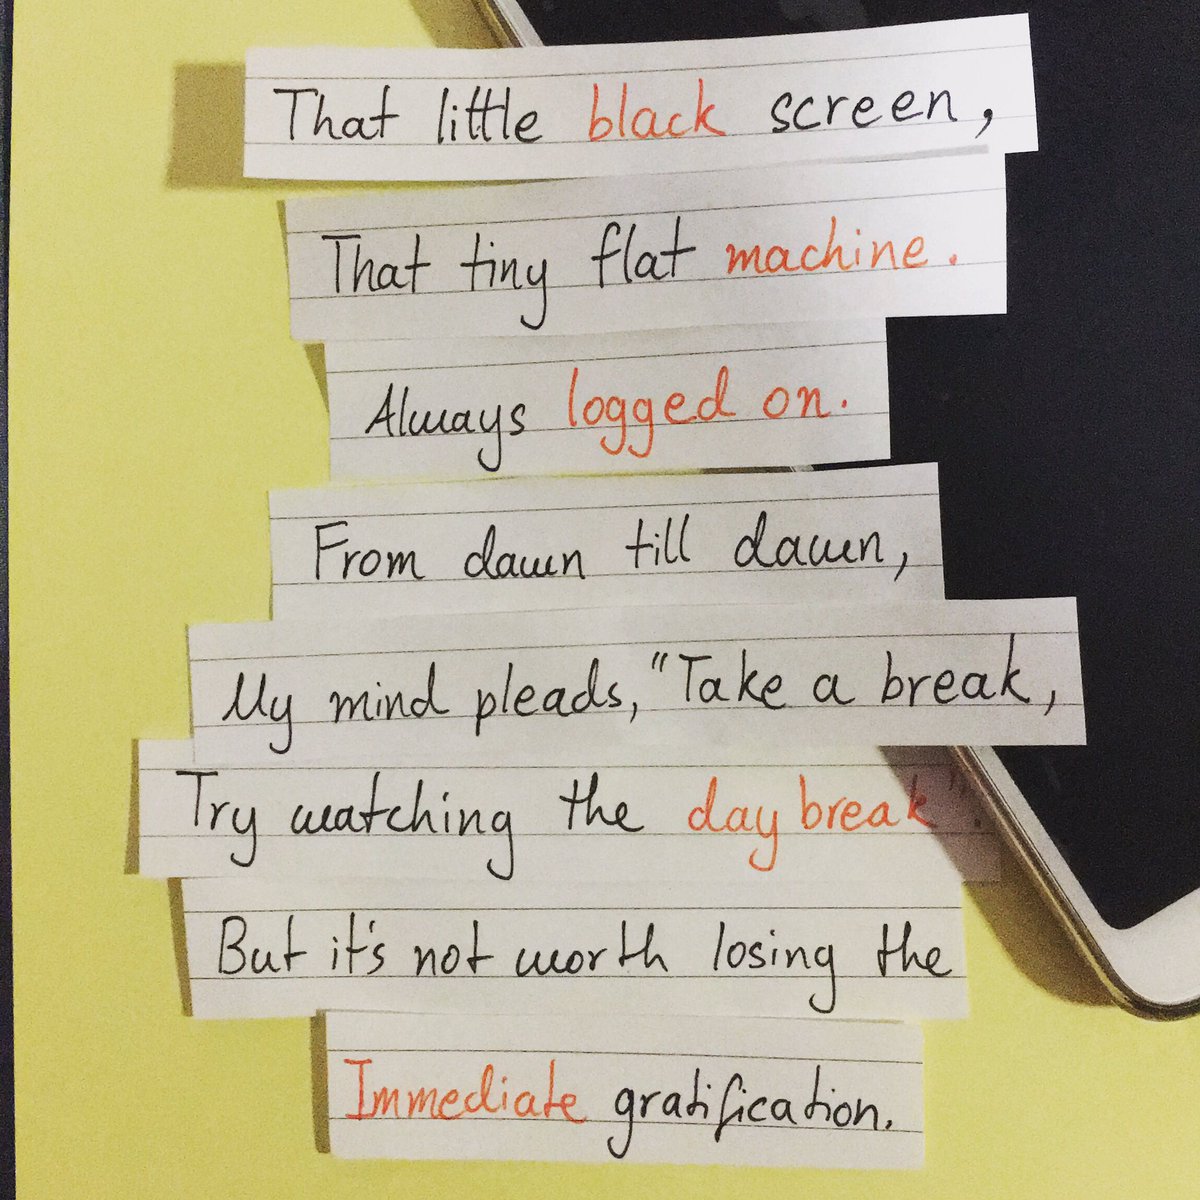 That little black screen,
That tiny flat machine.
Always logged on.
From dawn till dawn,
My mind pleads, "Take a break,
Try watching the day break".
But it's not worth losing the
Immediate gratification.